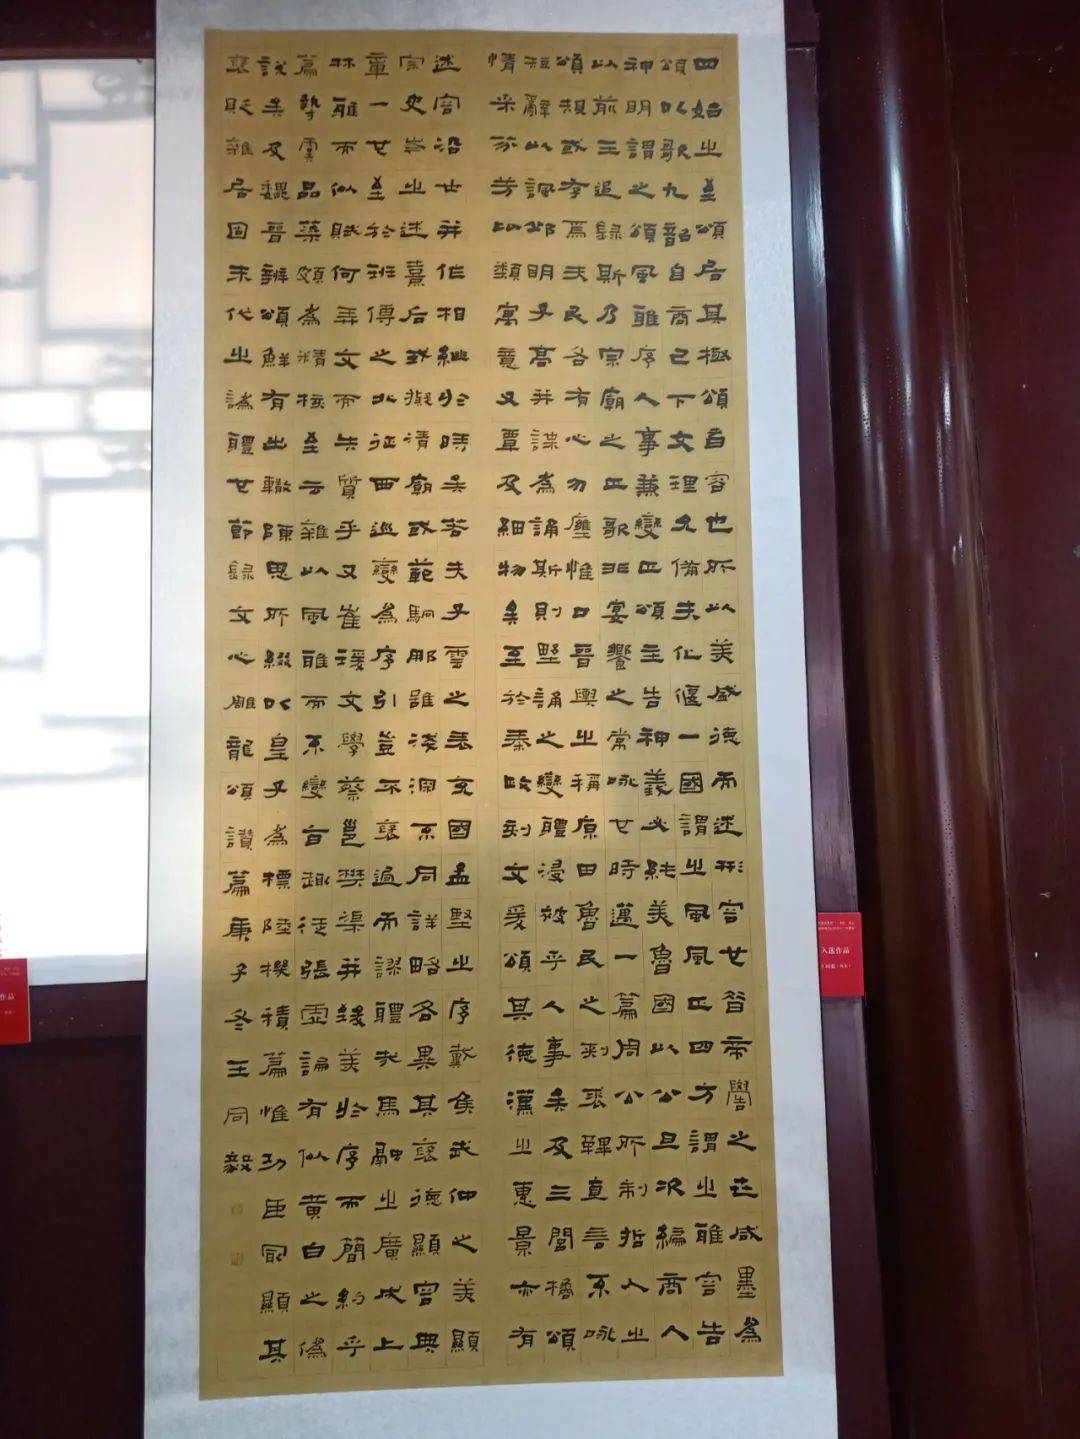 四始之至頌居其極頌者容也所以美盛德而述形容也昔帝嚳之世咸墨為
頌以歌九韶自商已下文理允備夫化偃一國謂之風風正四方謂之雅容告
神明謂之頌風雅序人事兼變正頌主告神義必純美魯國以公旦次編商人
以前王追錄斯乃宗廟之正歌非宴饗之常咏也時邁一篇周公所制哲人之
頌規或存焉夫民各有心勿壅惟口晉輿之稱原田魯民之刺裘鞸直言不咏
短辭以諷邱明子高并諜為誦斯則野誦之變體浸被乎人事矣及三閭橘頌
情采芬芳比類寓意又覃及細物矣至於秦政刻文爰頌其德漢之惠景亦有
述容沿世并作相繼於時矣若夫子雲之表充國孟堅之序戴侯武仲之美顯
宗史岑之述熹后或擬清廟或範駉那雖淺深不同詳略各異其褒德顯容典
章一也至於班傅之北征西巡變為序引豈不褒過而謬體哉馬融之廣成上
林雅而似賦何弄文而失質乎又崔瑗文學蔡邕樊渠并致美於序而簡約乎
篇摯虞品藻頗為精核至云雜以風雅而不變旨趣徒張虛論有似黃白之偽
說矣及魏晉辨頌鮮有出轍陳思所綴以皇子為標陸機積篇惟功臣最顯其
褒貶雜居固末代之訛體也節錄文心雕龍頌讚篇庚子冬王同毅
入选作品
作品